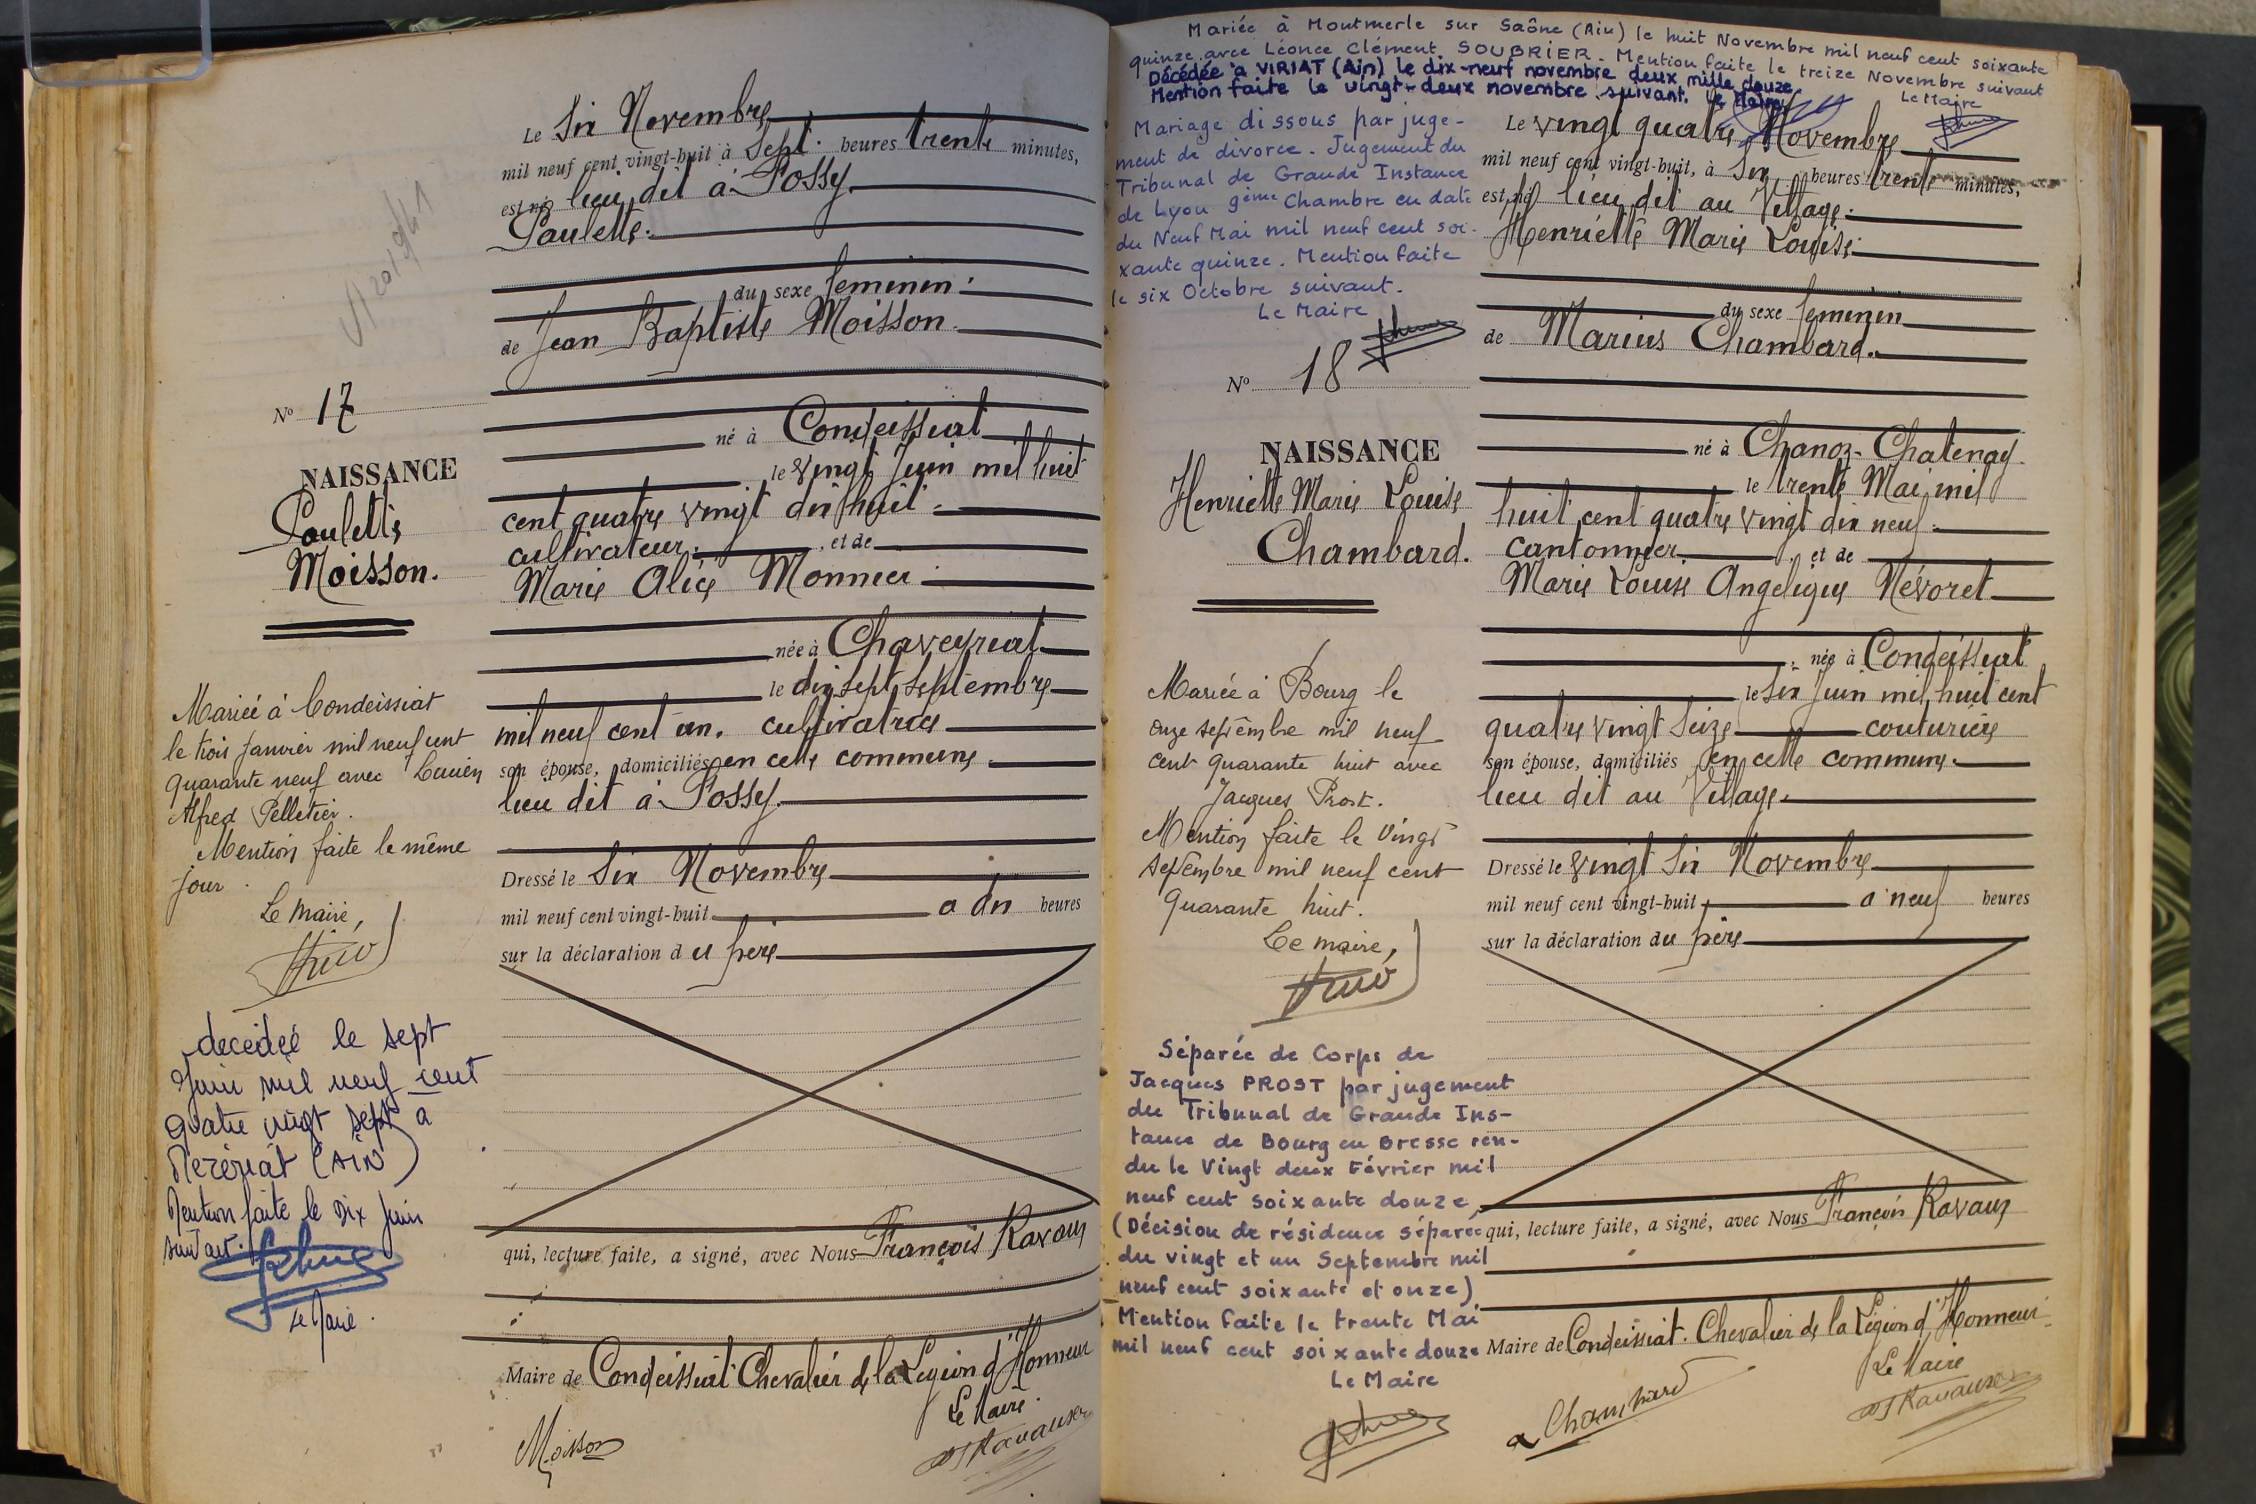 Le Six Novembre
mil neuf cent vingt-huit à Sept heures trente minutes,
est né lieu dit à Possy
Paulette
du sexe feminin
de Jean Baptiste Moisson
né à Condeissiat
le vingt Juin mil huit
cent quatre vingt dix huit
cultivateur, et de
Marie Alice Monnier
née à Chaveyriat
le dix sept Septembre
mil neuf cent un, cultivatrice
son épouse, domiciliés en cette commune
lieu dit à Possy
Dressé le Six Novembre
mil neuf cent vingt-huit à dix heures
sur la déclaration du père
qui, lecture faite, a signé, avec Nous François Ravaux
Maire de Condeissiat Chevalier de la Légion d'Honneur
Le Maire
Moisson
N° 17
NAISSANCE
Paulette
Moisson.
Mariée à Condeissiat
le trois Janvier mil neuf cent
quarante neuf avec Lucien
Alfred Pelletier.
Mention faite le même
jour.
Le maire,
decédée le sept
Juin mil neuf cent
quatre vingt sept à
(AIN)
Mention faite le Dix Juin
suivant.
Le Maire.
Mariée à Montmerle sur Saône (Ain) le huit Novembre mil neuf cent soixante
quinze avec Léonce Clément SOUBRIER. Mention faite le treize Novembre suivant
Le Maire
Décédée à VIRIAT (Ain) le dix-neuf novembre deux mille douze
Mention faite le vingt-deux novembre suivant. Le Maire
Mariage dissous par juge-
ment de divorce. Jugement du
Tribunal de Grande Instance
de Lyon 9ème Chambre en date
du Neuf Mai mil neuf cent soi-
xante quinze. Mention faite
le six Octobre suivant.
Le Maire
N° 18
NAISSANCE
Henriette Marie Louise
Chambard.
Mariée à Bourg le
onze septembre mil neuf
cent quarante huit avec
Jacques Prost.
Mention faite le vingt
septembre mil neuf cent
quarante huit.
Le maire,
Séparée de Corps de
Jacques PROST par jugement
du Tribunal de Grande Ins-
tance de Bourg en Bresse ren-
du le Vingt deux Février mil
neuf cent soixante douze,
(Décision de résidence séparée
du vingt et un Septembre mil
neuf cent soixante et onze)
Mention faite le trente Mai
mil neuf cent soixante douze
Le Maire
Le vingt quatre Novembre
mil neuf cent vingt-huit, à Six heures trente minutes,
est né lieu dit au Village
Henriette Marie Louise
du sexe feminin
de Marius Chambard.
né à Chanoz-Chatenay
le trente Mai mil
huit cent quatre vingt dix neuf
cantonnier, et de
Marie Louise Angelique Névoret
née à Condeissiat
le Six Juin mil huit cent
quatre vingt seize couturière
son épouse, domiciliés en cette commune
lieu dit au Village.
Dressé le vingt Six Novembre
mil neuf cent vingt-huit à neuf heures
sur la déclaration du père
qui, lecture faite, a signé, avec Nous François Ravaux
Maire de Condeissiat. Chevalier de la Légion d'Honneur
Le Maire
Chambard